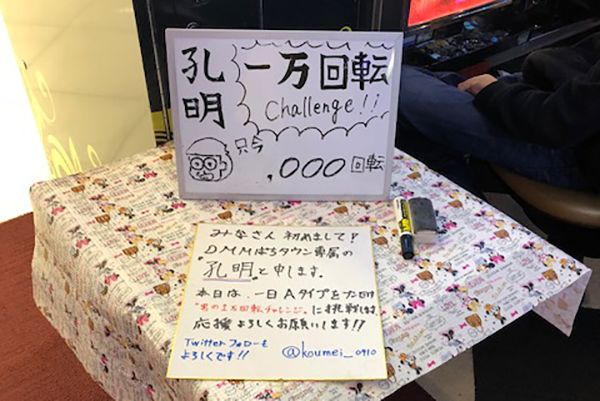 孔明
一万回転
Challenge!!
只今
,000 回転
みなさん 初めまして!
DMMぱちタウン専属の
"孔明"と申します。
本日は、一日Aタイプをブン回す
"男の1万回転チャレンジ"に挑戦します。
応援よろしくお願いします!!
Twitterフォローも
よろしくです!! @koumei_0910